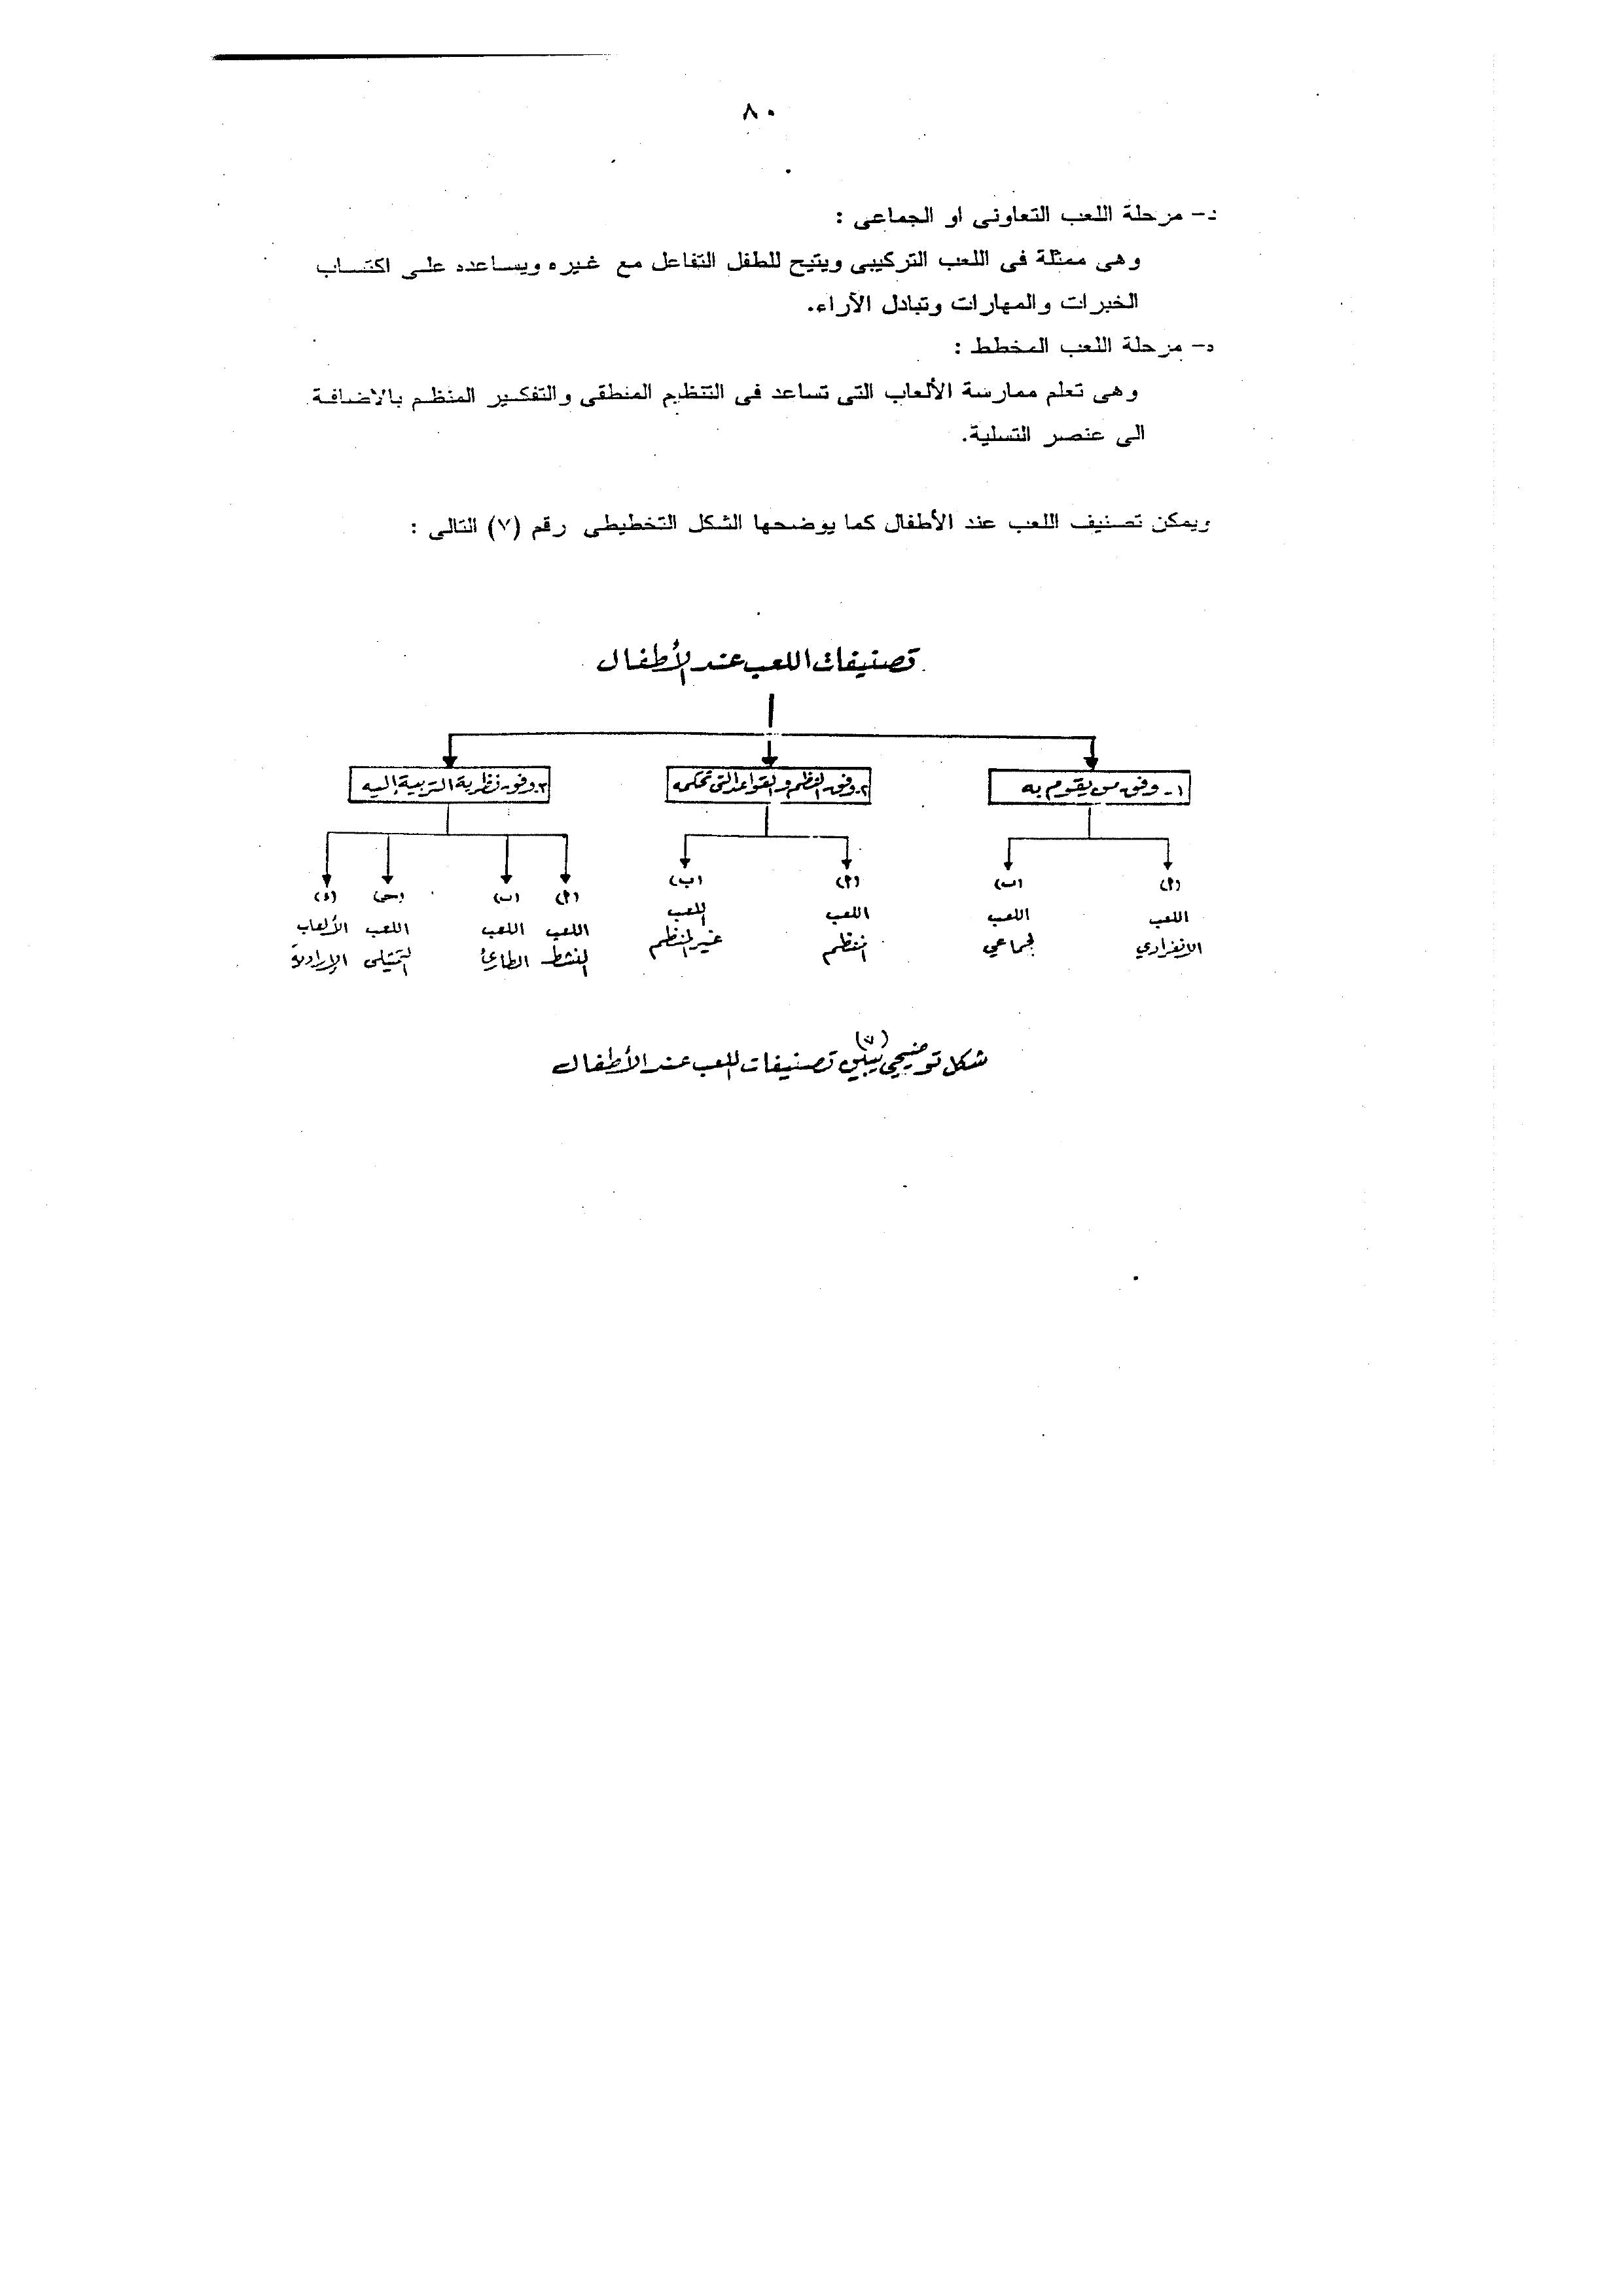 ٨٠
د- مرحلة اللعب التعاونى او الجماعى :
وهى ممثلة فى اللعب التركيبى ويتيح للطفل التفاعل مع غيره ويساعده على اكتساب
الخبرات والمهارات وتبادل الآراء.
د- مرحلة اللعب المخطط :
وهى تعلم ممارسة الألعاب التى تساعد فى التنظيم المنطقى والتفكير المنظم بالاضافة
الى عنصر التسلية.
ويمكن تصنيف اللعب عند الأطفال كما يوضحها الشكل التخطيطى رقم (٧) التالى :
تصنيفات اللعب عند الأطفال
١- وفق من يقوم به
٢- وفق النظم والقواعد التى تحكمه
٣- وفق نظرية التربية إليه
(أ)
اللعب
الانفرادي
(ب)
اللعب
الجماعي
(أ)
اللعب
المنظم
(ب)
اللعب
غير المنظم
(أ)
اللعب
النشط
(ب)
اللعب
الطارئ
(جـ)
اللعب
التمثيلى
(د)
الألعاب
الإرادية
(٧)
شكل توضيحي يبين تصنيفات اللعب عند الأطفال